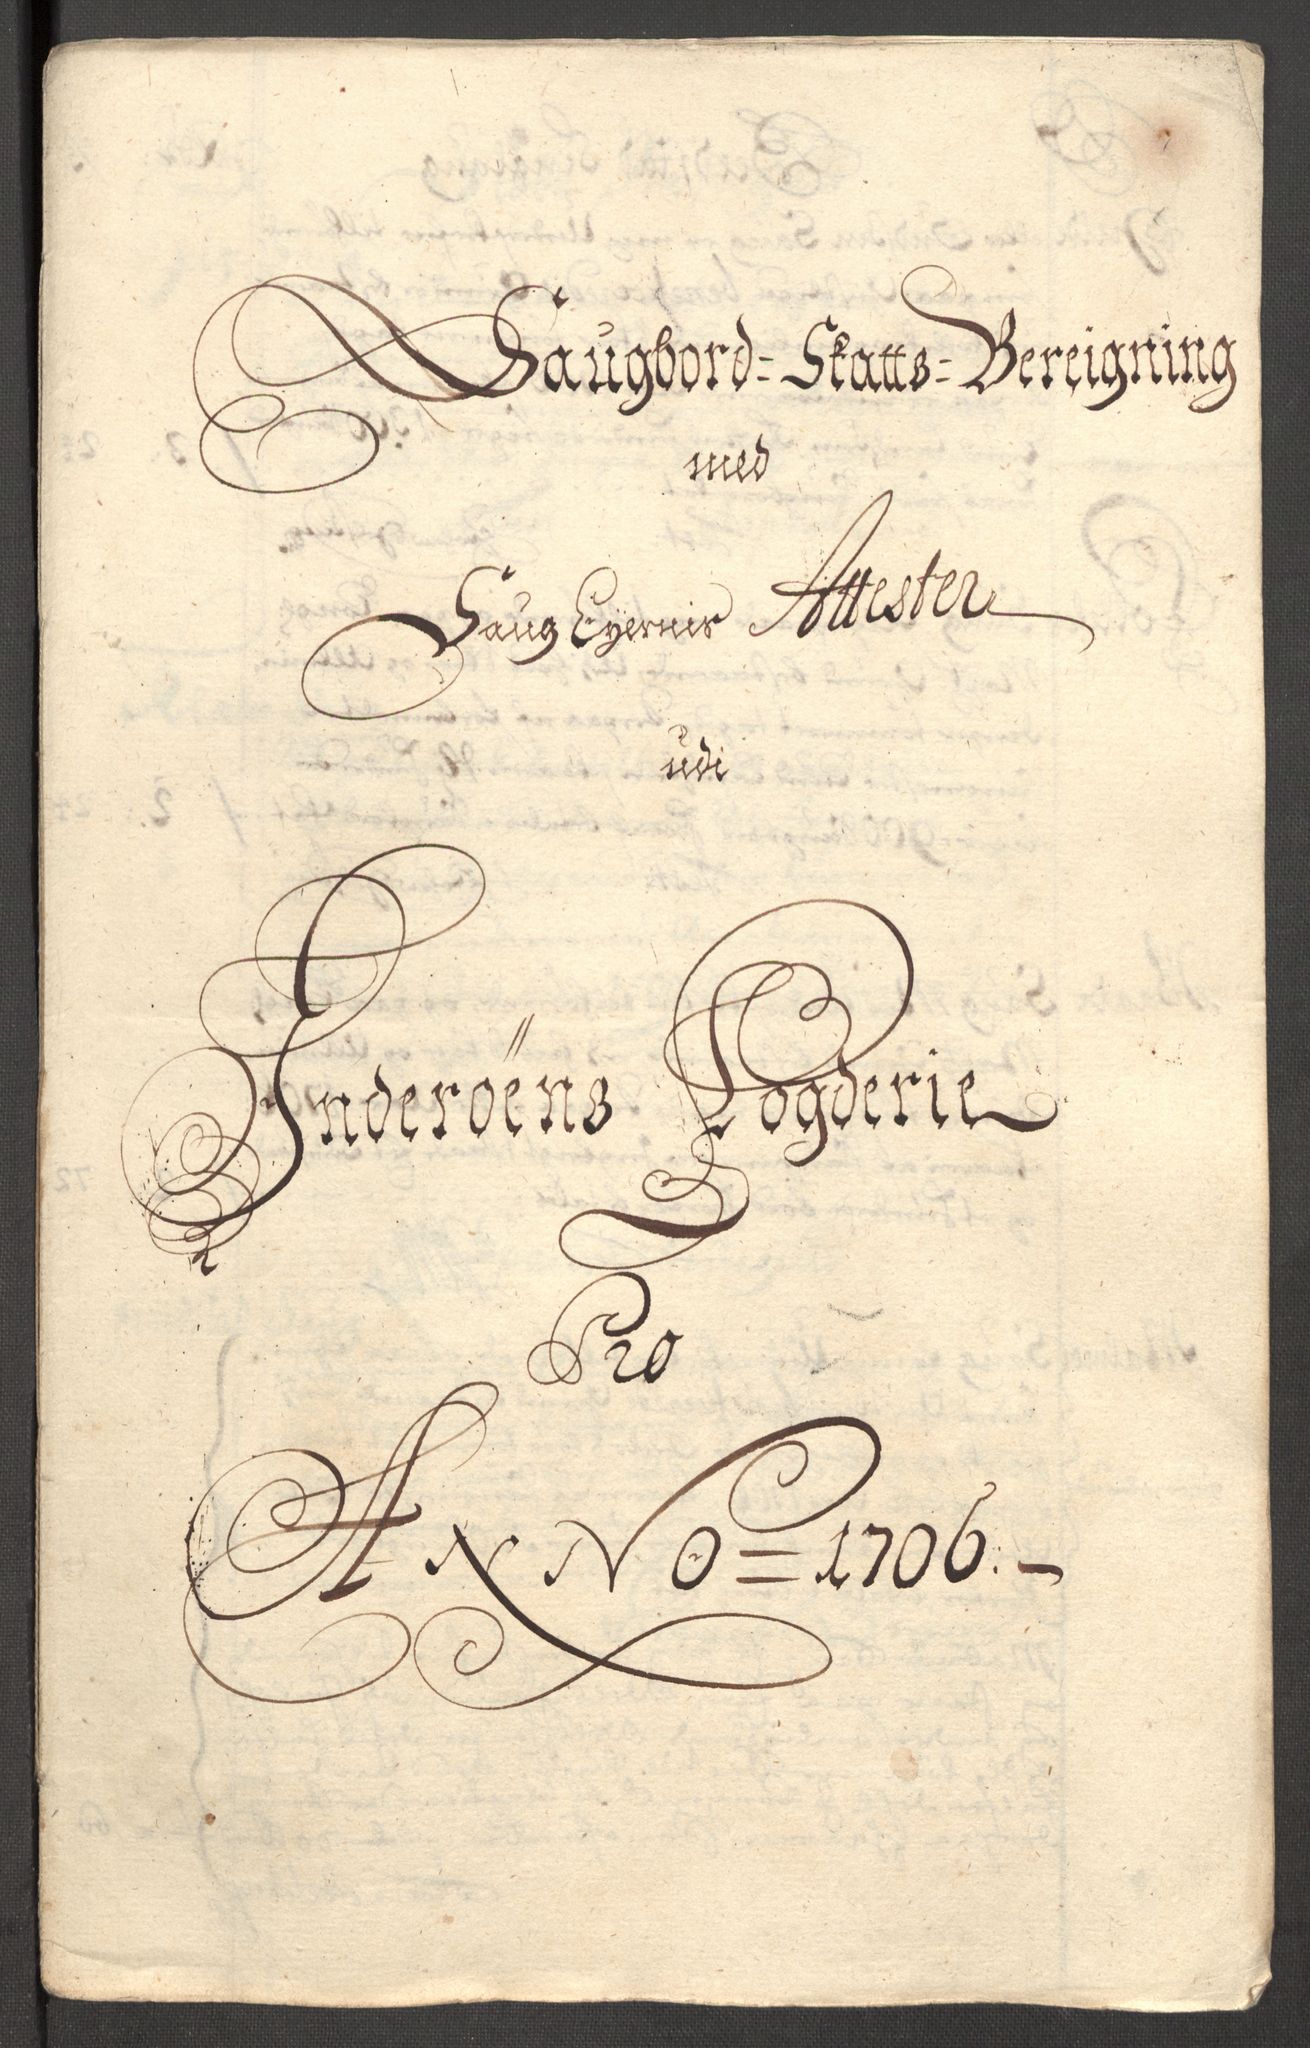 Saugbord= Skatts= Bereigning
med
Saug Eyernis Attester
udi
Inderöens Fogderie
Pro
ANNO = 1706. –